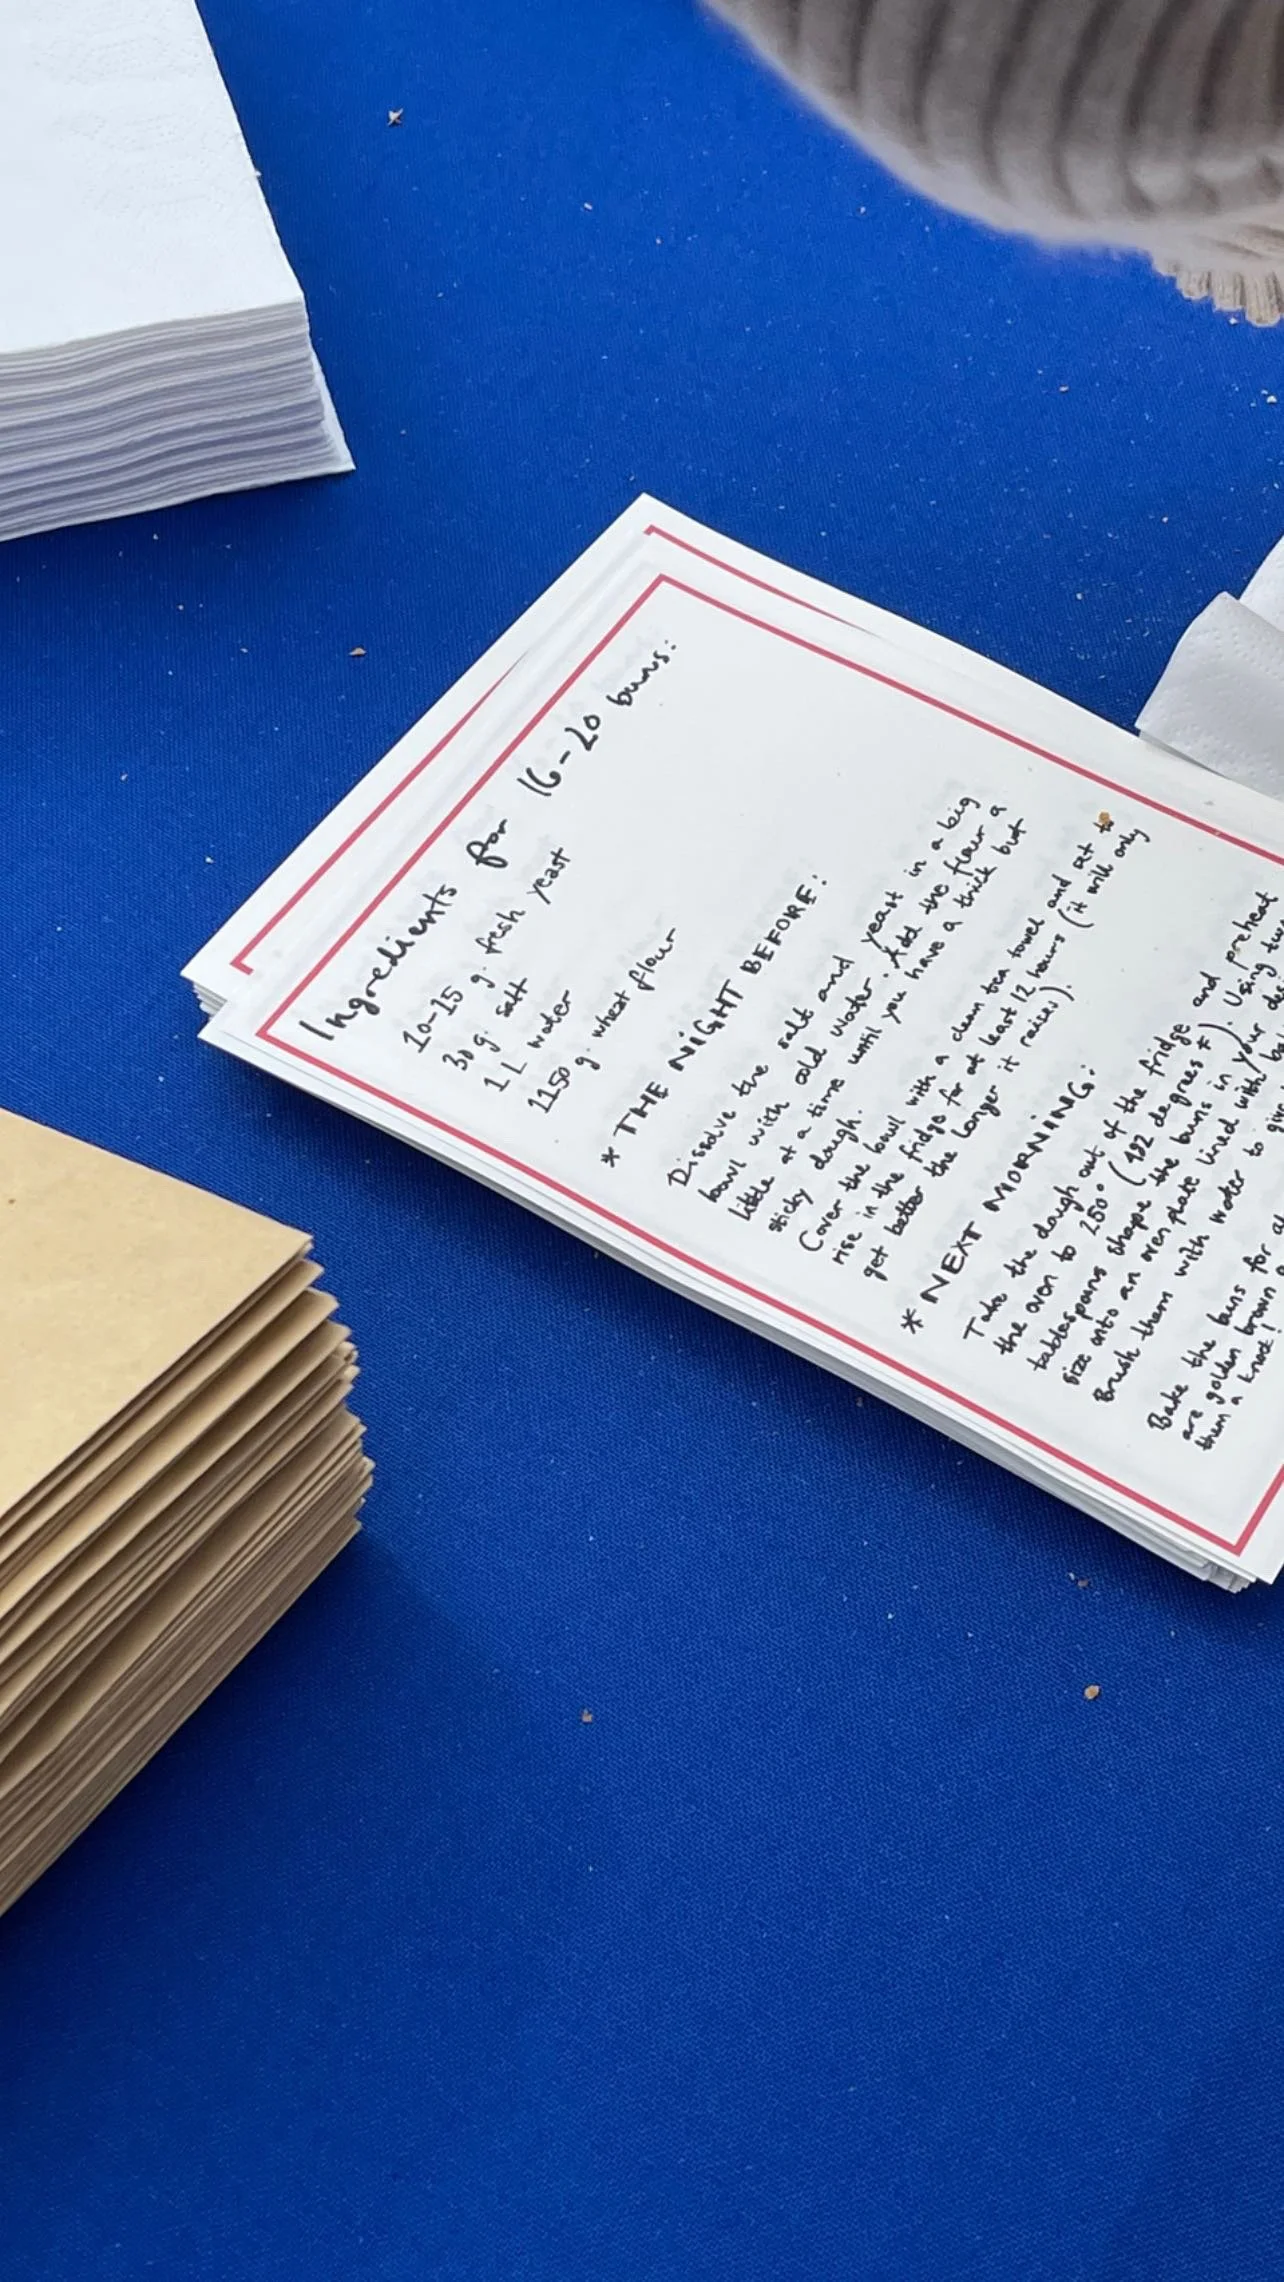 Ingredients for 16-20 buns:
10-15 g. fresh yeast
30 g. salt
1 L water
1150 g. wheat flour
* THE NIGHT BEFORE:
Dissolve the salt and yeast in a big
bowl with cold water. Add the flour a
little at a time until you have a thick but
sticky dough.
Cover the bowl with a clean tea towel and set to
rise in the fridge for at least 12 hours (it will only
get better the longer it raises).
* NEXT MORNING:
Take the dough out of the fridge and preheat
the oven to 250° (482 degrees F). Using two
tablespoons shape the buns in your
size onto an oven plate lined with
Brush them with water to
Bake the buns for
are golden brown
them a knock!